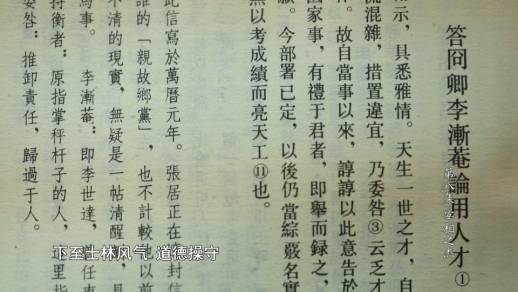 答冏卿李漸菴論用人才①
示，具悉雅情。天生一世之才，自
流混雜，措置違宜，乃委咎③云乏才
作。故自當事以來，諄諄以此意告於
國家事，有禮于君者，即舉而録之，
今部署已定，以後仍當綜覈名實
無以考成績而亮天工⑪也。
此信寫於萬曆元年。 張居正在 封信
誰的「親故鄉黨」，也不計較他以前
不清的現實，無疑是一帖清醒 具
馬事。 李漸菴：即李世達， 任
持衡者：原指掌秤杆子的人，這里指
委咎：推卸責任，歸過于人。
下至士林风气 道德操守